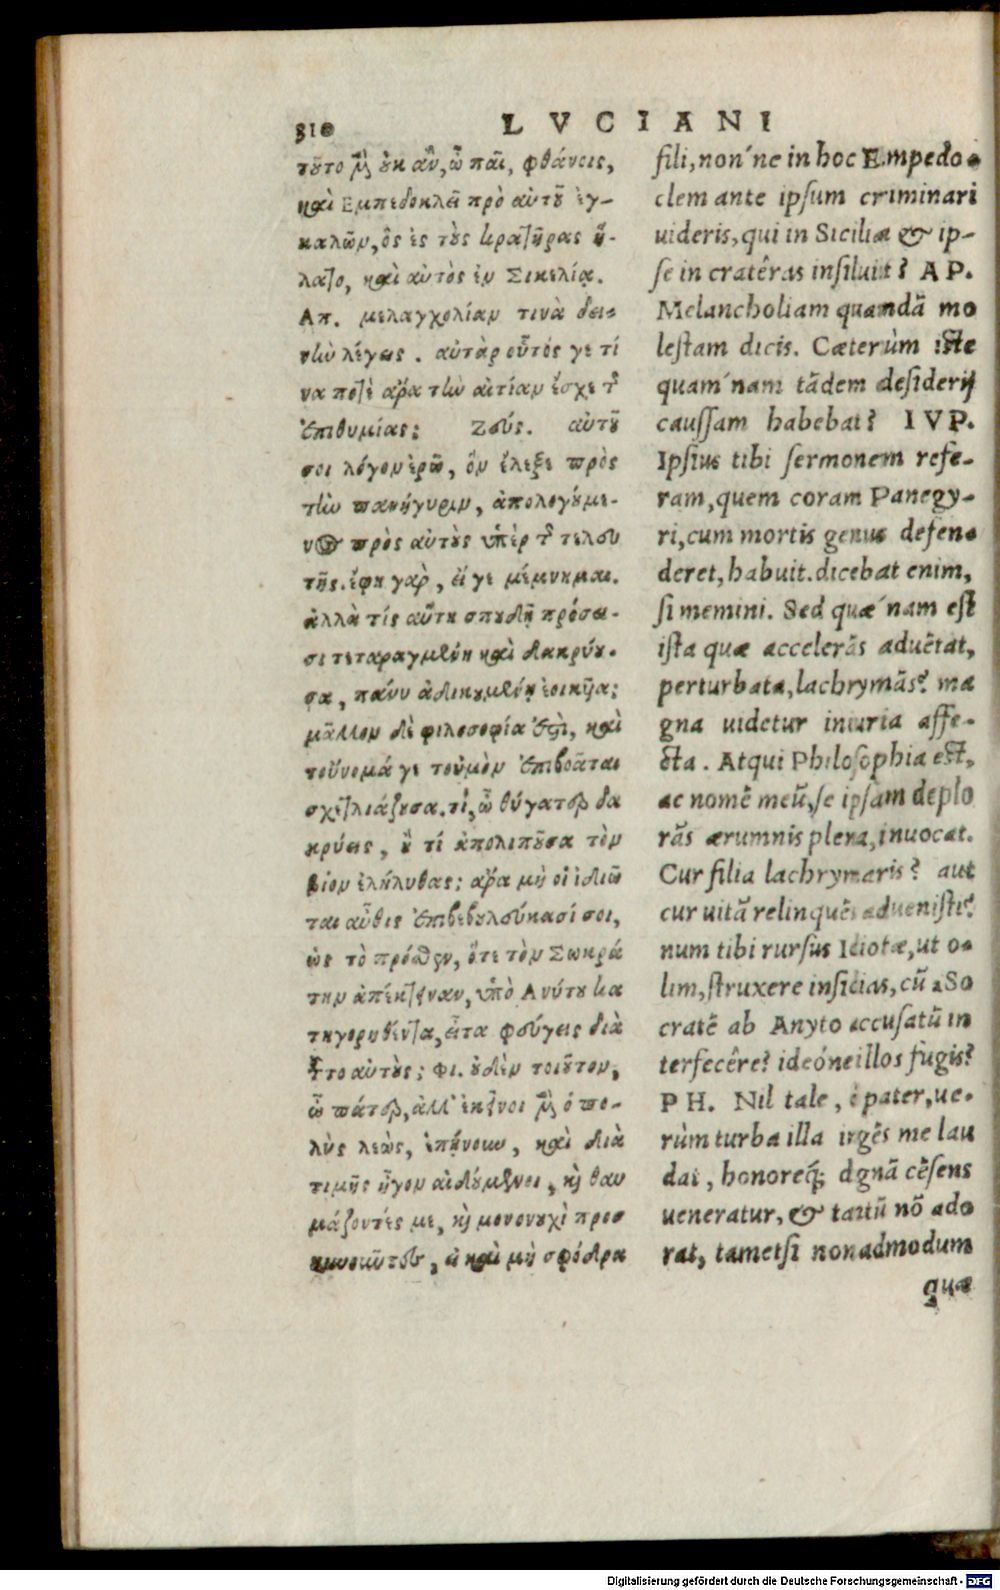 310
LVCIANI
τοῦτο μὲν οὐκ ἂν, ὦ παῖ, φθάνοις,
καὶ Εμπεδοκλεῖ πρὸ αὐτοῦ ἐγ-
καλῶν, ὃς ἐς τοὺς κρατῆρας ἥ-
λατο, καὶ αὐτὸς ἐν Σικελίᾳ.
Απ. μελαγχολίαν τινὰ δει-
νὴν λέγεις. αὐτὰρ οὗτός γε τί
να ποτὲ ἄρα τὴν αἰτίαν ἔσχε τῆς
ἐπιθυμίας; Ζεύς. αὐτοῦ
σοι λόγον ἐρῶ, ὃν ἔλεξε πρὸς
τὴν πανήγυριν, ἀπολογούμε-
νος πρὸς αὐτοὺς ὑπὲρ τῆς τελευ
τῆς. ἔφη γὰρ, εἴ γε μέμνημαι.
ἀλλὰ τίς αὕτη σπουδῇ πρόσει-
σι τεταραγμένη καὶ δακρύου-
σα, πάνυ ἀδικουμένῃ ἐοικυῖα;
μᾶλλον δὲ φιλοσοφία ἐστὶ, καὶ
τοὔνομά γε τοὐμὸν ἐπιβοᾶται
σχετλιάζουσα. τί, ὦ θύγατερ δα
κρύεις, ἢ τί ἀπολιποῦσα τὸν
βίον ἐλήλυθας; ἄρα μὴ οἱ ἰδιῶ
ται αὖθις ἐπιβεβουλεύκασί σοι,
ὡς τὸ πρόσθεν, ὅτε τὸν Σωκρά
την ἀπέκτειναν, ὑπὸ Ανύτου κα
τηγορηθέντα, εἶτα φεύγεις διὰ
τοῦτο αὐτούς; Φι. οὐδὲν τοιοῦτον,
ὦ πάτερ, ἀλλ' ἐκεῖνοι μὲν ὁ πο-
λὺς λεὼς, ἐπῄνουν, καὶ διὰ
τιμῆς ἦγον αἰδούμενοι, καὶ θαυ
μάζοντές με, καὶ μονονουχὶ προσ
κυνοῦντες, εἰ καὶ μὴ σφόδρα
fili, non´ne in hoc Empedo-
clem ante ipsum criminari
uideris, qui in Siciliæ & ip-
se in cratêras insiluit? AP.
Melancholiam quandā mo
lestam dicis. Cæterùm iste
quam´nam tādem desiderij
caussam habebat? IVP.
Ipsius tibi sermonem refe-
ram, quem coram Panegy-
ri, cum mortis genus defen-
deret, habuit. dicebat enim,
si memini. Sed quæ´nam est
ista quæ accelerās aduētat,
perturbata, lachrymās? ma
gna uidetur iniuria affe-
cta. Atqui Philosophia est,
ac nomē meū, se ipsam deplo
rās ærumnis plena, inuocat.
Cur filia lachrymaris? aut
cur uitā relinquēs aduenisti?
num tibi rursus Idiotæ, ut o-
lim, struxere insidias, cū So
cratē ab Anyto accusatū in
terfecêre? ideóne illos fugis?
PH. Nil tale, ô pater, ue-
rùm turba illa ingēs me lau
dat, honoreq́; dgnā cēsens
ueneratur, & tantū nō ado
rat, tametsi non admodum
quæ
Digitalisierung gefördert durch die Deutsche Forschungsgemeinschaft - DFG